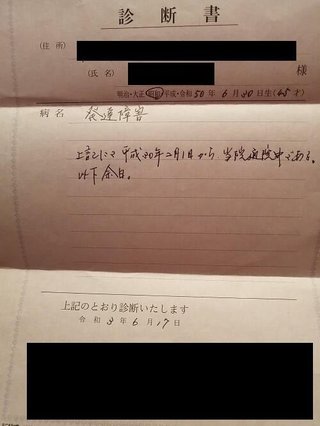 診断書
(住所)
(氏名) 様
明治・大正・昭和・平成・令和 50年 6月 30日生(45才)
病名 発達障害
上記にて平成30年2月1日から当院通院中である。
以下余白。
上記のとおり診断いたします
令和 3年 6月 17日